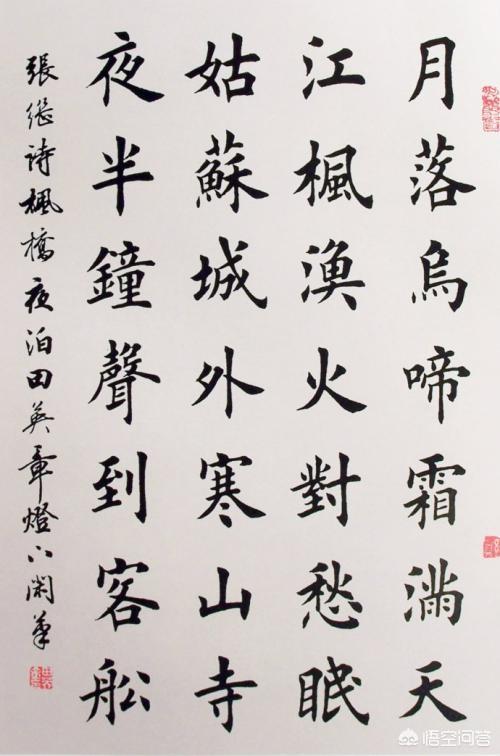 月落烏啼霜滿天
江楓漁火對愁眠
姑蘇城外寒山寺
夜半鐘聲到客船
張继诗楓橋夜泊田英章燈下闲筆
悟空问答